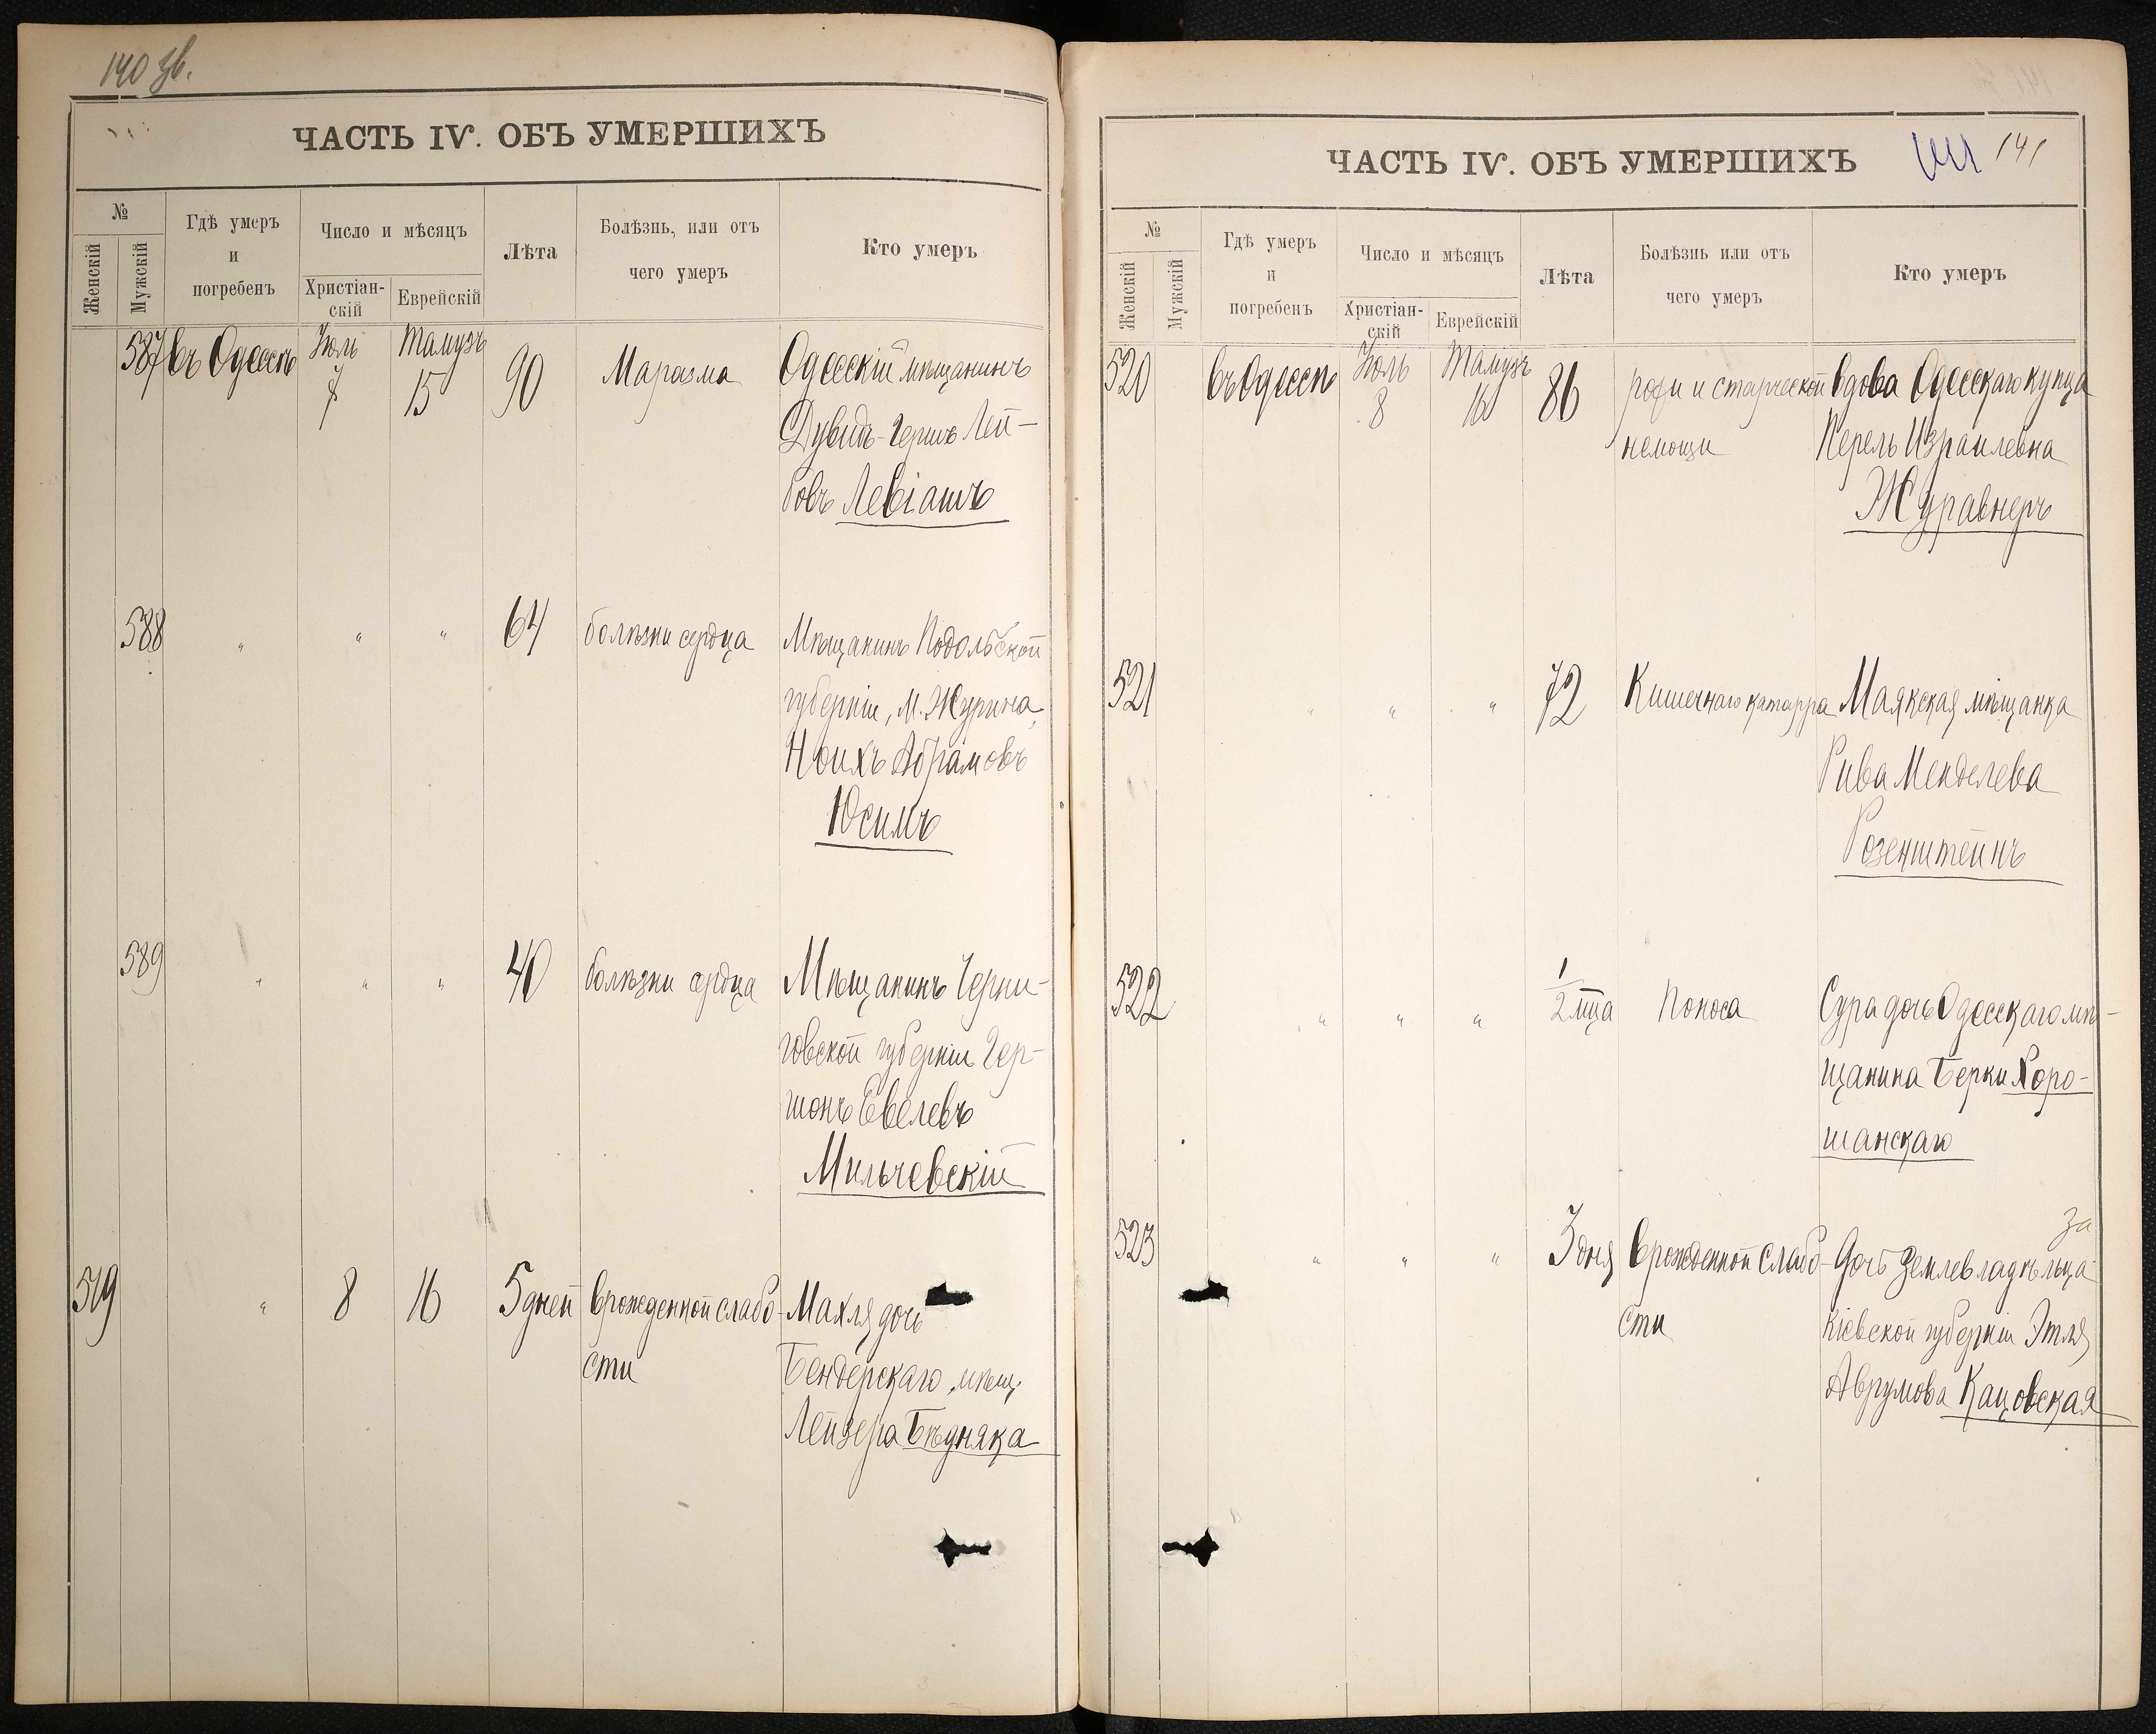 140 зв.
ЧАСТЬ IV. ОБЪ УМЕРШИХЪ
№
Женскій
Мужскій
Гдѣ умеръ
и
погребенъ
Число и мѣсяцъ
Христіан-
скій
Еврейскій
Лѣта
Болѣзнь, или отъ
чего умеръ
Кто умеръ
587 въ Одессѣ Іюль Тамузъ 90 Маразма Одесскій мѣщанинъ
7 15
Дувидъ-Гершъ Лей-
бовъ Левіашъ
588 " " " 64 болѣзни сердца Мѣщанинъ Подольской
губерніи, М. Журина,
Ноихъ Абрамовъ
Юсимъ
589 " " " 40 болѣзни сердца Мѣщанинъ Черни-
говской губерніи Гер-
шонъ Евелевъ
Мильчевскій
519 " 8 16 5 дней врожденной слабо- Махля дочь
сти Бендерскаго мѣщ.
Лейзера Бѣдняка
141
ЧАСТЬ IV. ОБЪ УМЕРШИХЪ
№
Женскій
Мужскій
Гдѣ умеръ
и
погребенъ
Число и мѣсяцъ
Христіан-
скій
Еврейскій
Лѣта
Болѣзнь или отъ
чего умеръ
Кто умеръ
520 въ Одессѣ Іюль Тамузъ 86 рожи и старческой вдова Одесскаго купца
8 16
немощи Перель Израилевна
Журавнеръ
521 " " " 72 Кишечнаго катарра Маякская мѣщанка
Рива Менделева
Розенштейнъ
522 " " " 1/2 мца Поноса Сура дочь Одесскаго мѣ-
щанина Берки Хоро-
шанскаго
за
523 " " " 3 дня врожденной слабо- дочь землевладѣльца
сти Кіевской губерніи Этля
Аврумова Кацовская